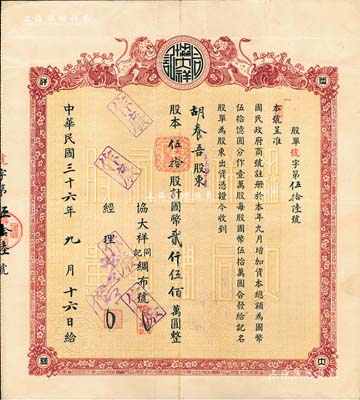 協大祥
股單號字第伍拾陸號
本號呈准
國民政府商號註册於本年九月增加資本總額為國幣
伍拾億圓分作壹萬股每股國幣伍拾萬圓合發給記名
股單為股東出資憑證今收到
胡叅吾股東
股本伍拾股計國幣貳仟伍佰萬圓整
協大祥同記綢布號
經理
中華民國三十六年九月十六日給
號字第伍拾陸號